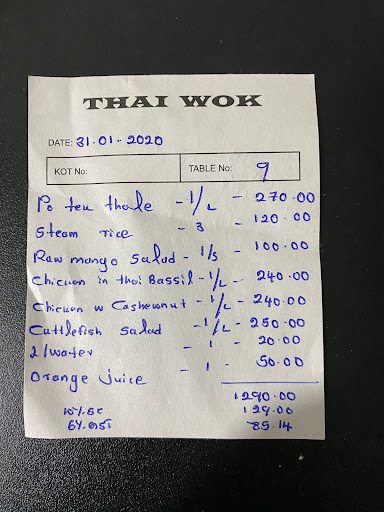 THAI WOK
DATE: 31-01-2020
KOT No: TABLE No: 9
Po teu thale - 1/L - 270.00
Steam rice - 3 - 120.00
Raw mango salad - 1/S - 100.00
Chicken in thai Bassil - 1/L - 240.00
Chicken w Cashewnut - 1/L - 240.00
Cuttlefish salad - 1/L - 250.00
2 l water - 1 - 20.00
Orange juice - 1 - 50.00
1290.00
10% sc 129.00
6% 85.14